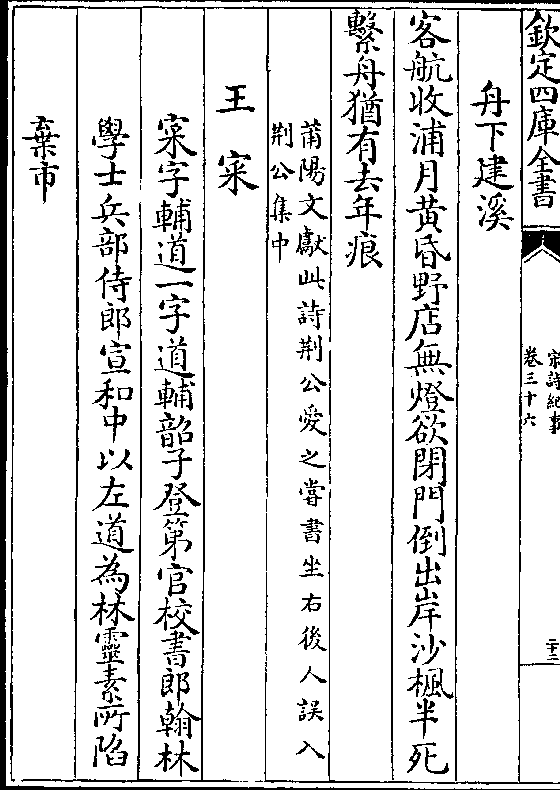 欽定四庫全書
宋詩紀事
卷三十六
二十二
舟下建溪
客航收浦月黃昏野店無燈欲閉門倒出岸沙楓半死
繫舟猶有去年痕
莆陽文獻此詩荆公愛之嘗書坐右後人誤入
荆公集中
王寀
寀字輔道一字道輔韶子登第官校書郎翰林
學士兵部侍郎宣和中以左道為林靈素所陷
棄市